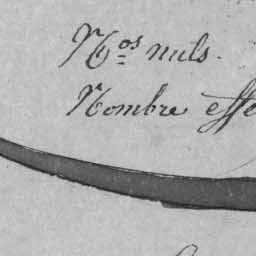 N.os nuls.
Nombre effe